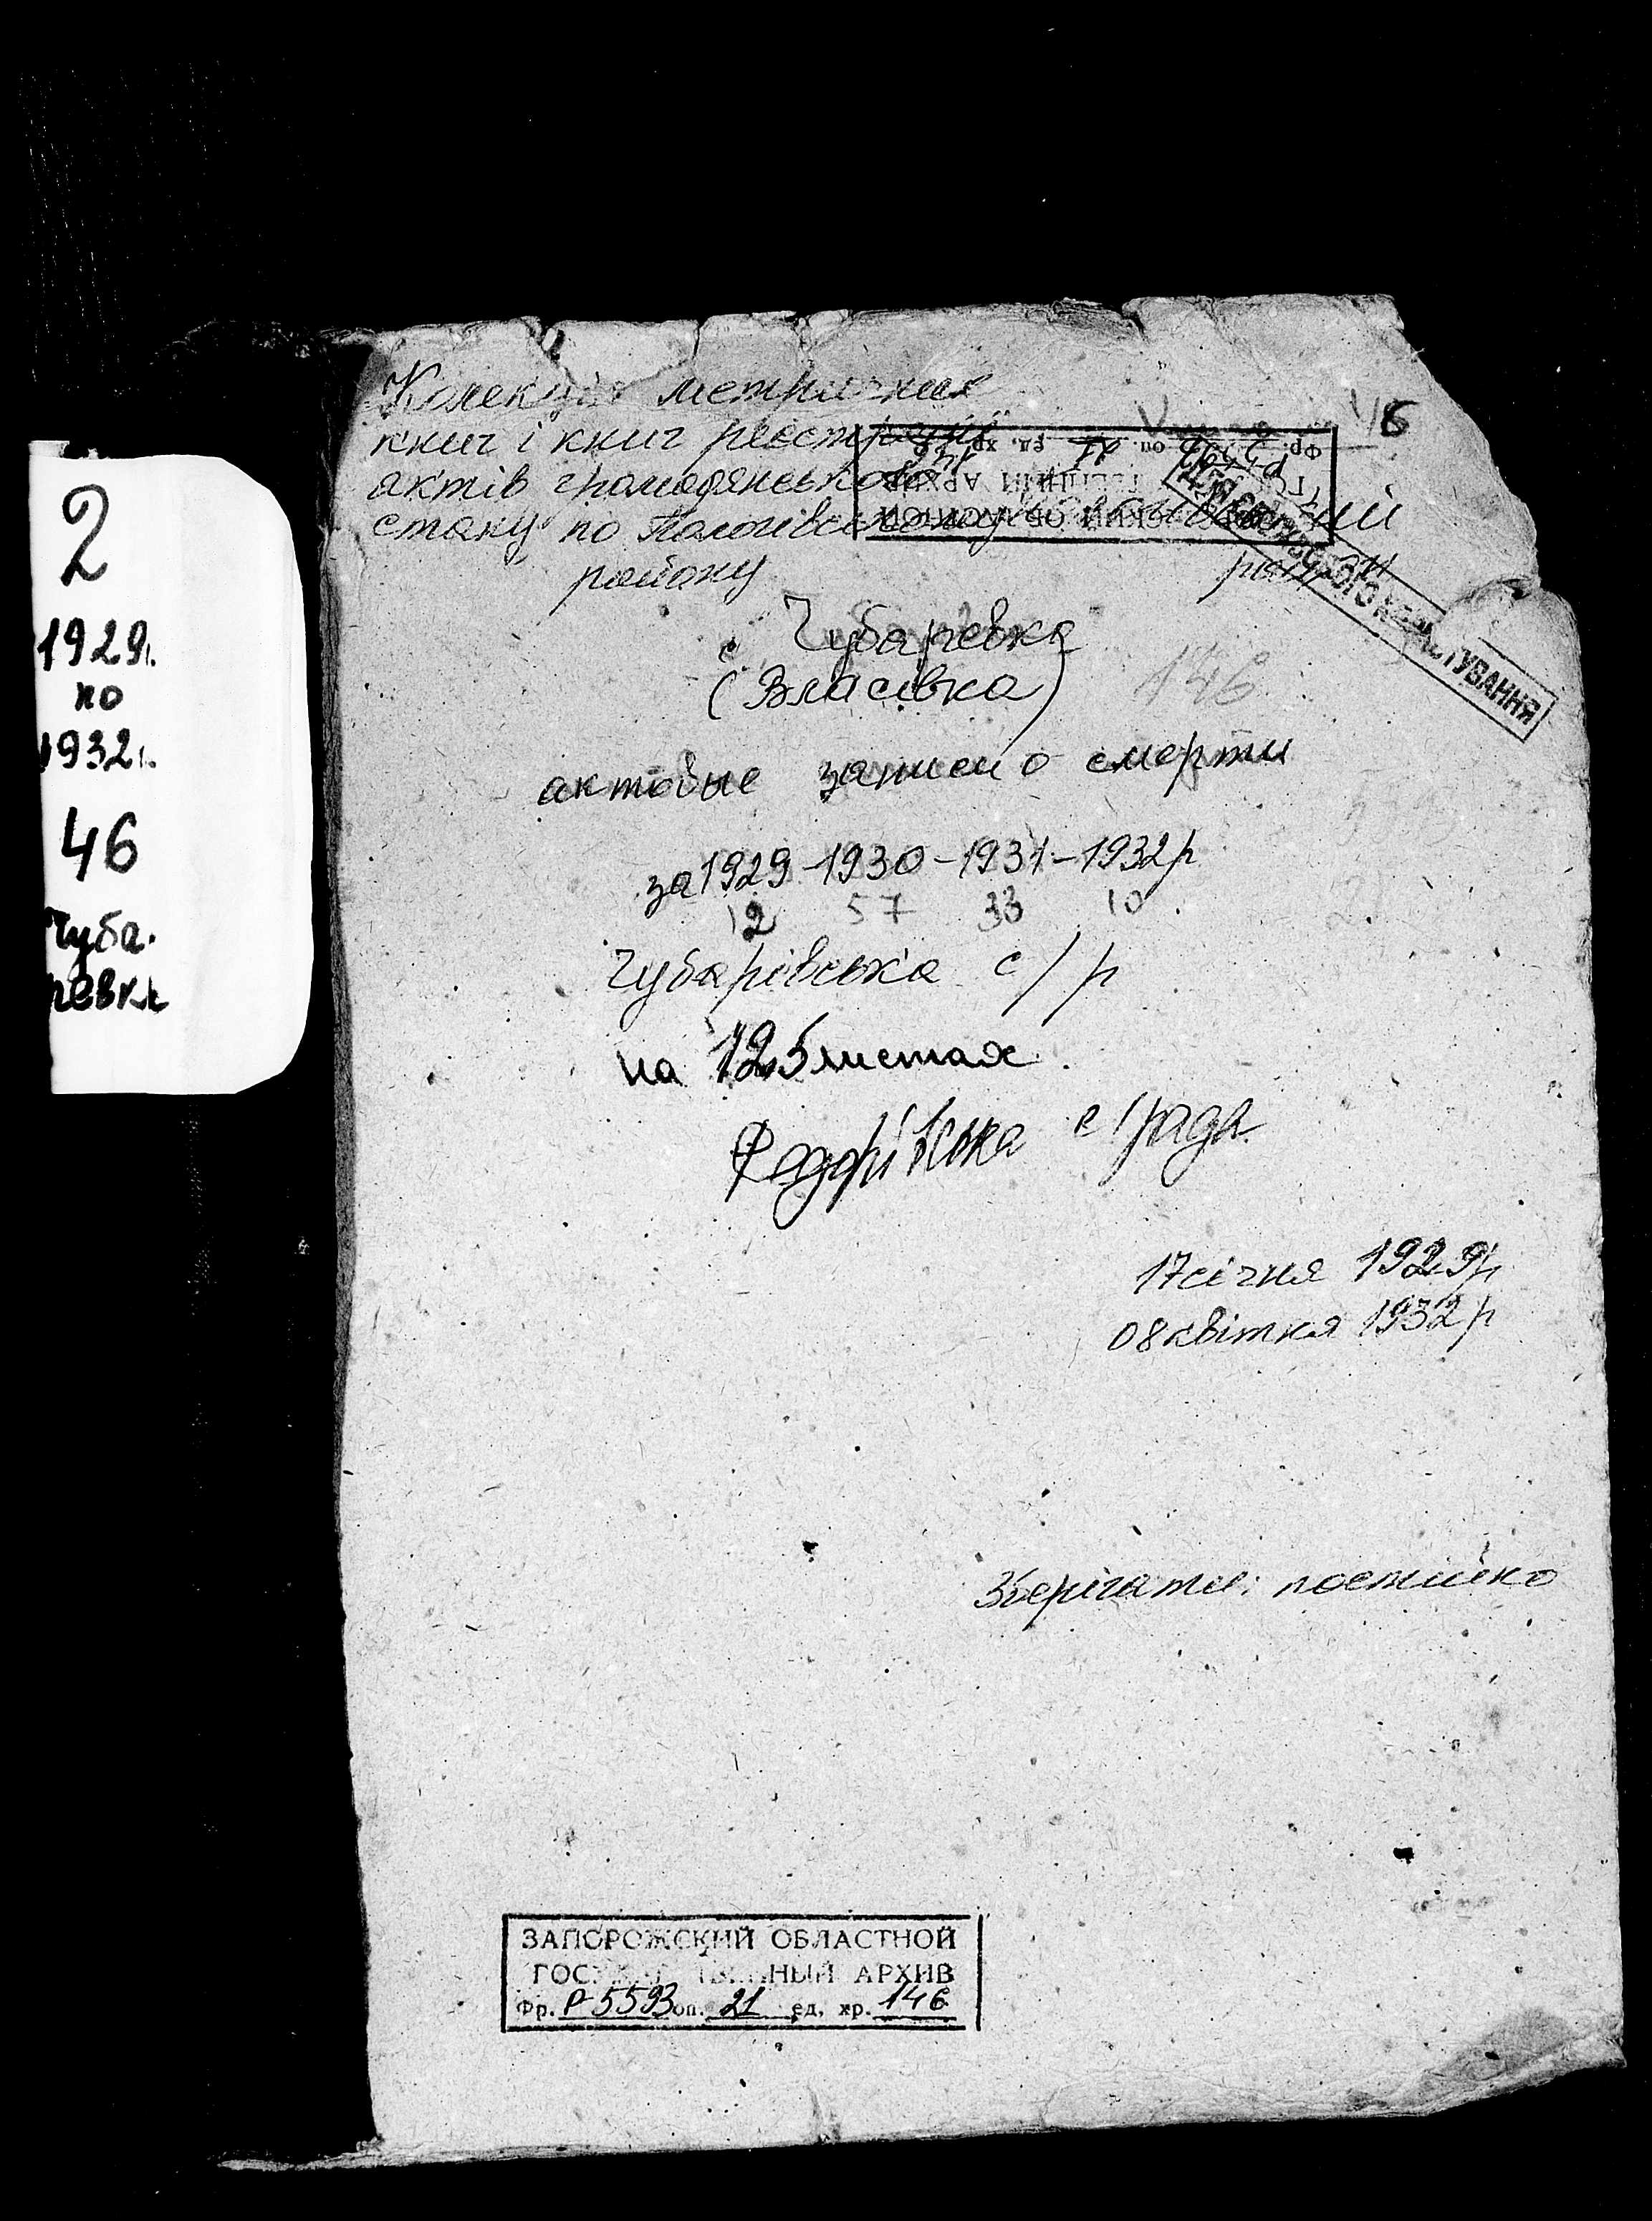 2
1929г.
по
1932г.
46
Чуба.
ревка
Колекція метричних
книг і книг реєстрації
актів громадянського
стану по Пологівському
району
с. Чубаревка
(Власівка)
146
актовые записи о смерти
за 1929-1930-1931-1932р
12 57 33 10
Чубарівська с/р
на 125 листах
Федорівська с/рада
17 січня 1929р
08 квітня 1932р
Зберігати: постійно
ЗАПОРОЖСКИЙ ОБЛАСТНОЙ
ГОСУДАРСТВЕННЫЙ АРХИВ
Фр. Р-5593 оп. 21 ед. хр. 146